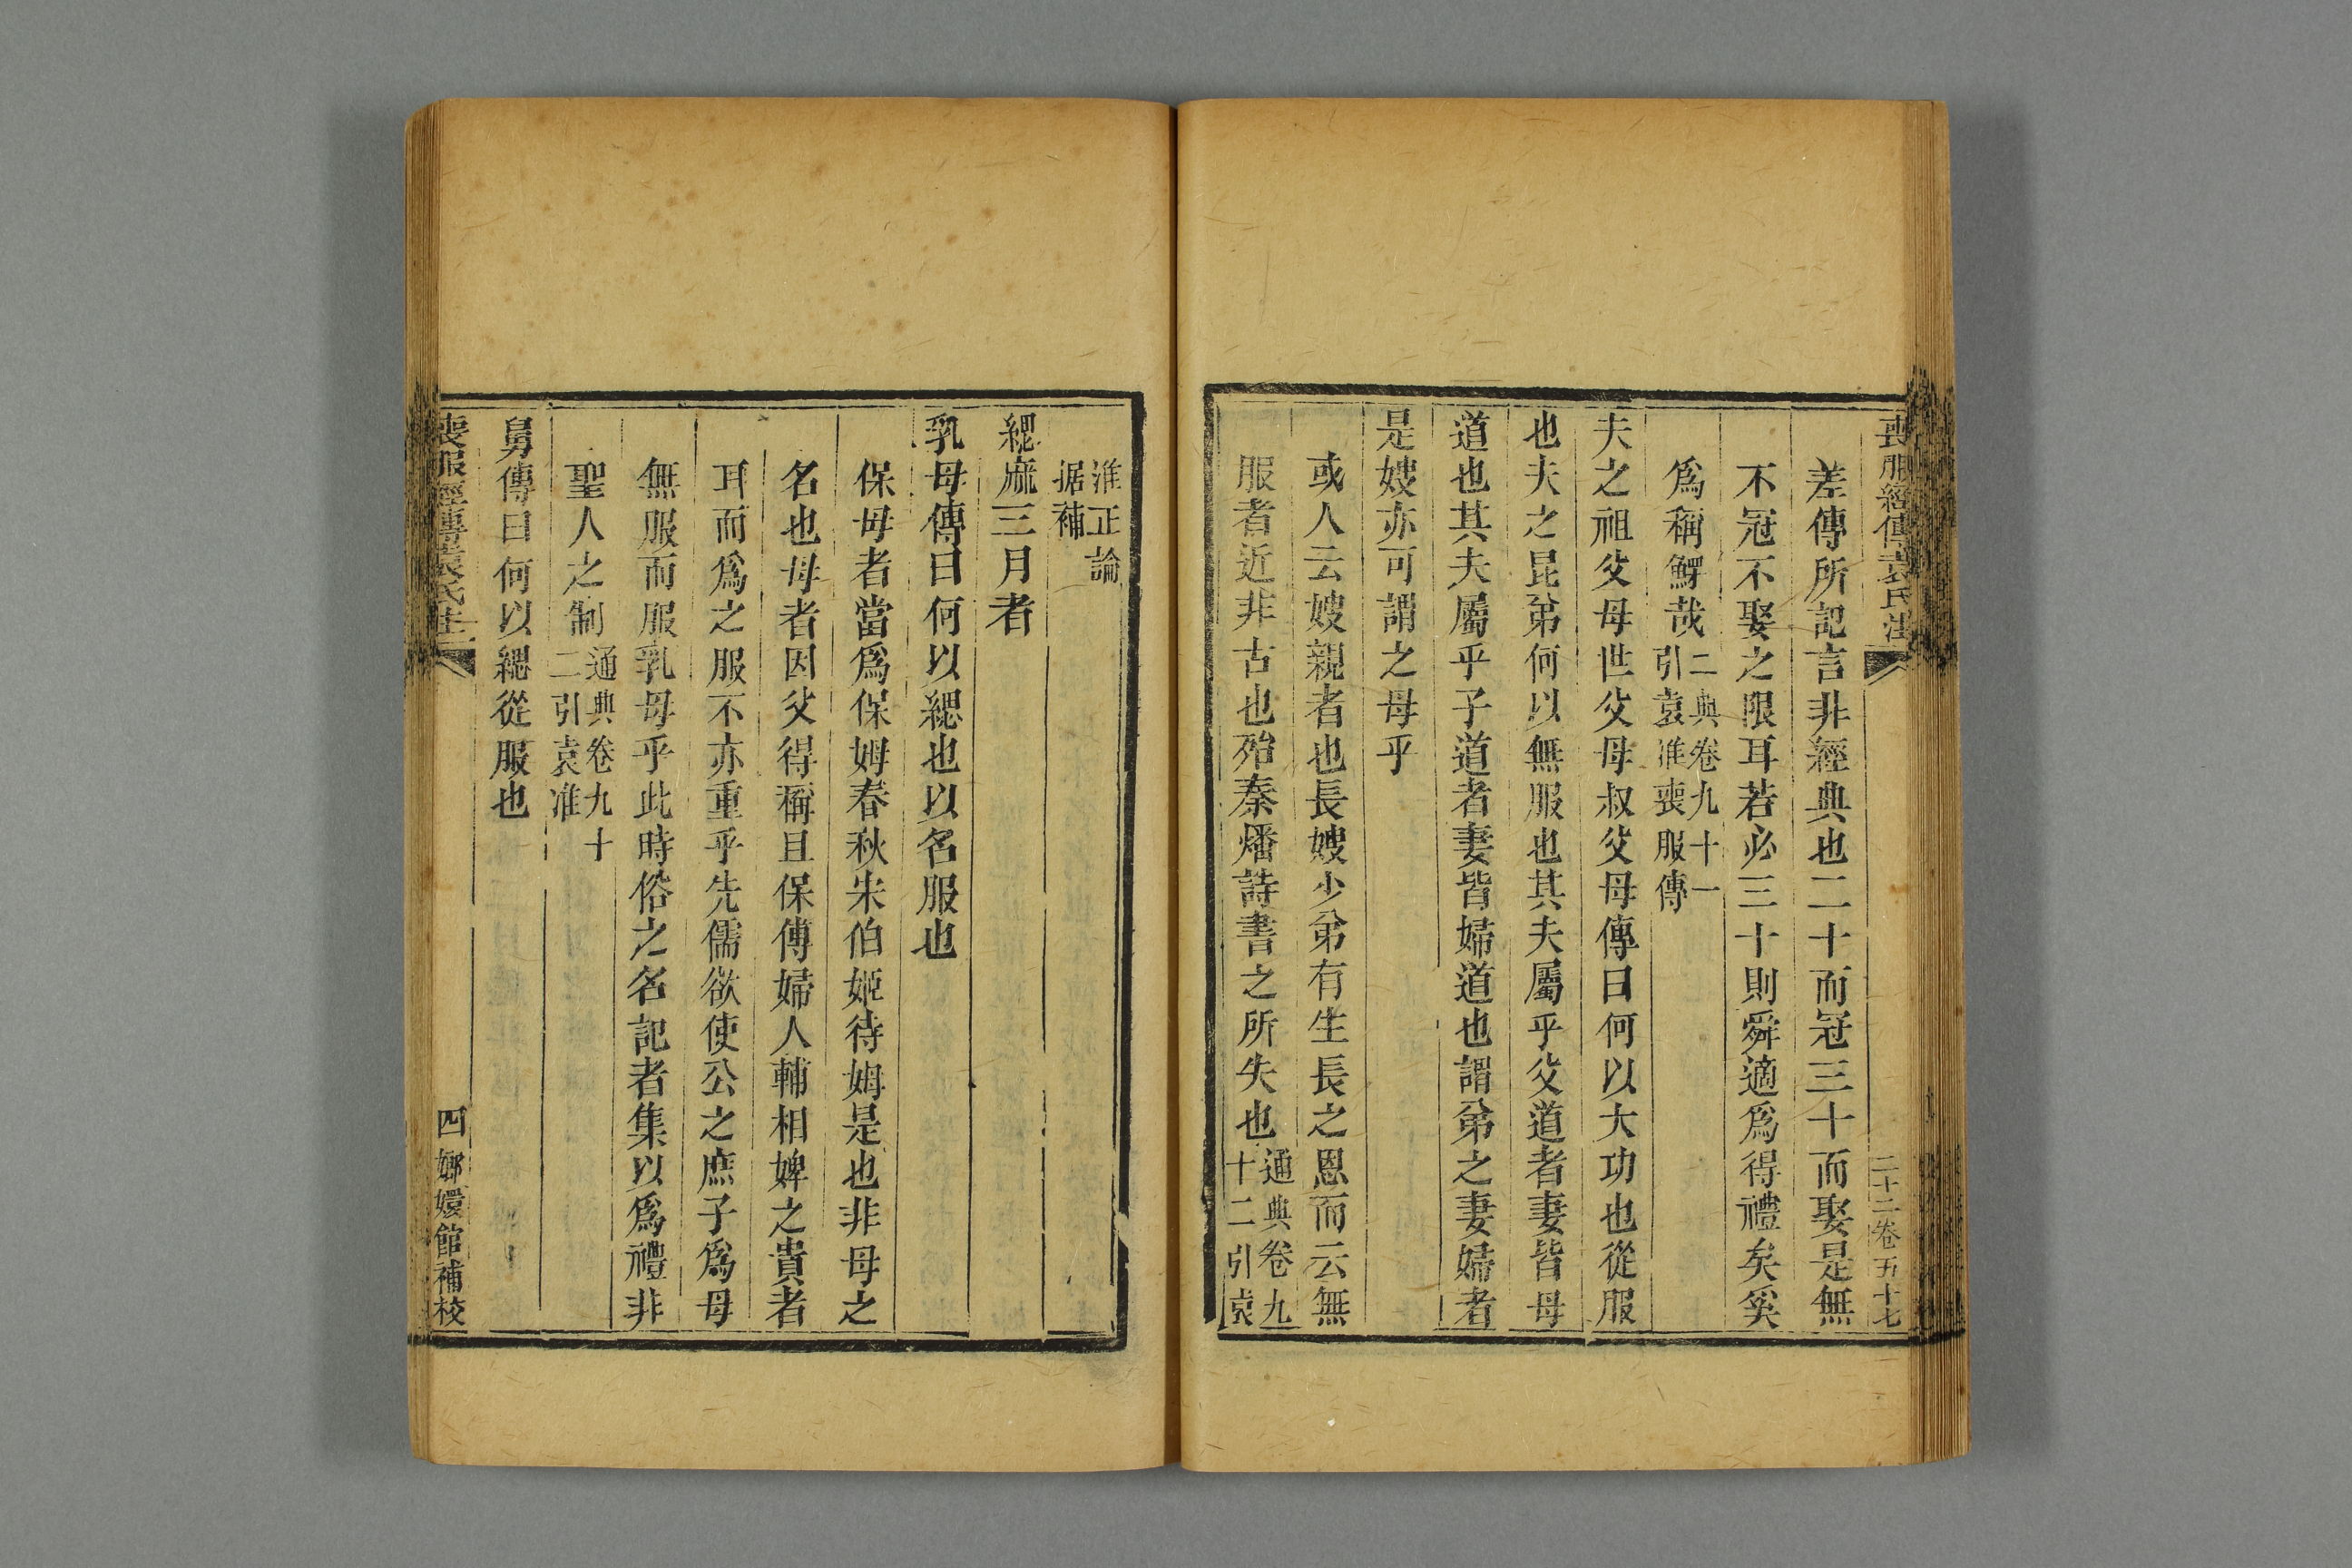 喪服經傳袁氏注 二十二卷五十七
差傳所記言非經典也二十而冠三十而娶是無
不冠不娶之限耳若必三十則舜適爲得禮矣奚
爲稱鰥哉二典卷九十一引袁准喪服傳
夫之祖父母世父母叔父母傳曰何以大功也從服
也夫之昆弟何以無服也其夫屬乎父道者妻皆母
道也其夫屬乎子道者妻皆婦道也謂弟之妻婦者
是嫂亦可謂之母乎
或人云嫂親者也長嫂少弟有生長之恩而云無
服者近非古也殆秦燔詩書之所失也通典卷九十二引袁
准正論据補
緦麻三月者
乳母傳曰何以緦也以名服也
保母者當爲保姆春秋宋伯姬待姆是也非母之
名也母者因父得稱且保傅婦人輔相婢之貴者
耳而爲之服不亦重乎先儒欲使公之庶子爲母
無服而服乳母乎此時俗之名記者集以爲禮非
聖人之制通典卷九十二引袁准
舅傳曰何以緦從服也
喪服經傳袁氏注 四 嫏嬛館補校